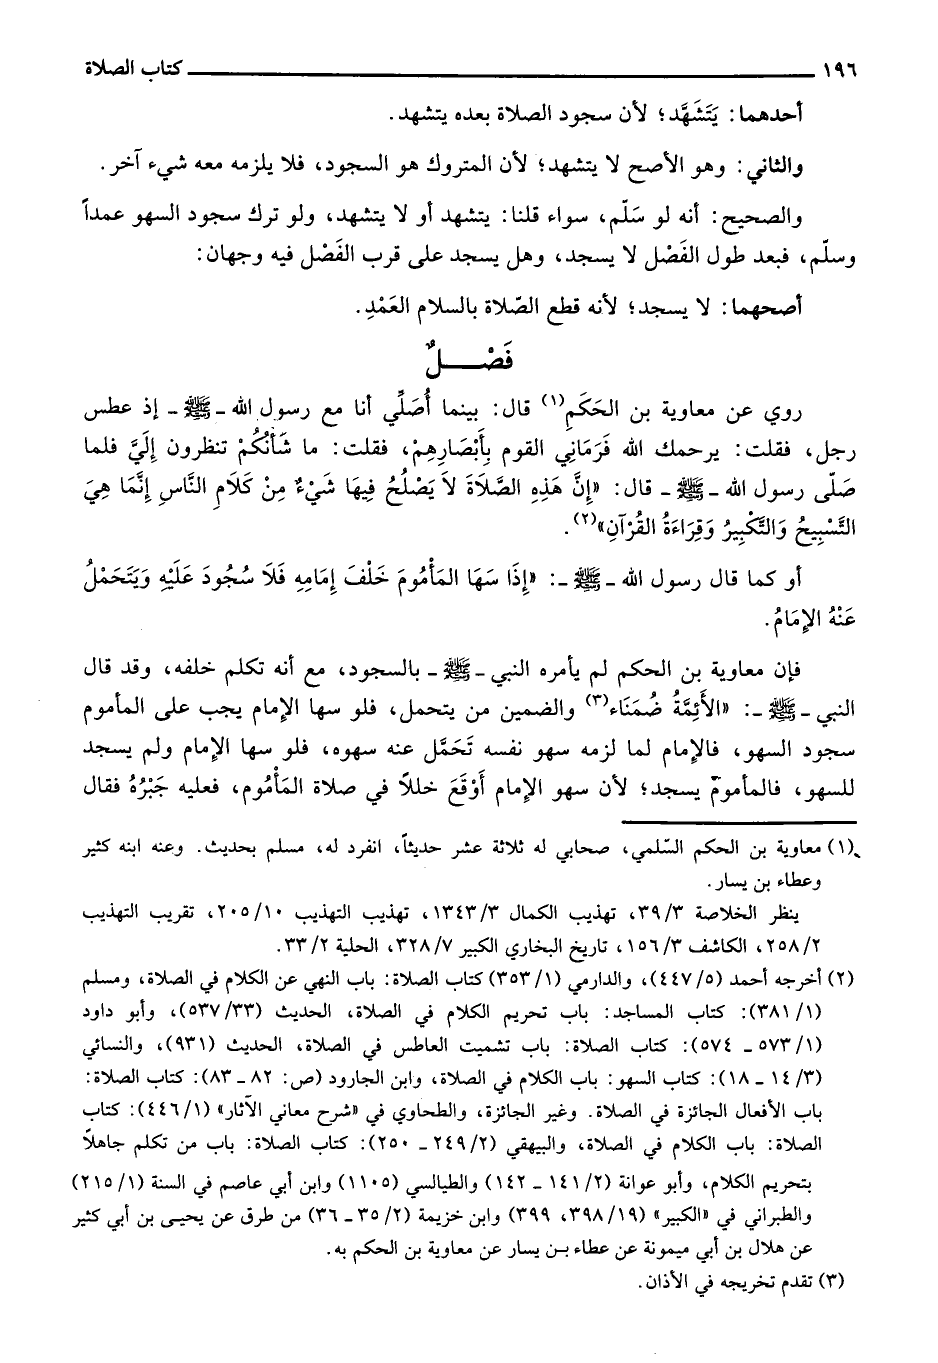 ١٩٦ كتاب الصلاة
أحدهما: يَتَشَهَّد؛ لأن سجود الصلاة بعده يتشهد.
والثاني: وهو الأصح لا يتشهد؛ لأن المتروك هو السجود، فلا يلزمه معه شيء آخر.
والصحيح: أنه لو سَلّم، سواء قلنا: يتشهد أو لا يتشهد، ولو ترك سجود السهو عمداً
وسلّم، فبعد طول الفَصْل لا يسجد، وهل يسجد على قرب الفَصْل فيه وجهان:
أصحهما: لا يسجد؛ لأنه قطع الصّلاة بالسلام العَمْدِ.
فَصْـــلٌ
روي عن معاوية بن الحَكَمِ(١) قال: بينما أُصَلِّي أنا مع رسول الله ـ ﷺ ـ إذ عطس
رجل، فقلت: يرحمك الله فَرَمَانِي القوم بِأَبْصَارِهِمْ، فقلت: ما شَأْنُكُمْ تنظرون إِلَيَّ فلما
صَلّى رسول الله ـ ﷺ ـ قال: «إِنَّ هَذِهِ الصَّلَاةَ لاَ يَصْلُحُ فِيهَا شَيْءٌ مِنْ كَلَامِ النَّاسِ إِنَّمَا هِيَ
التَّسْبِيحُ وَالتَّكْبِيرُ وَقِرَاءَةُ القُرْآنِ»(٢).
أو كما قال رسول الله ـ ﷺ ـ: «إِذَا سَهَا المَأْمُومَ خَلْفَ إِمَامِهِ فَلَا سُجُودَ عَلَيْهِ وَيَتَحَمْلُ
عَنْهُ الإِمَامُ.
فإن معاوية بن الحكم لم يأمره النبي ـ ﷺ ـ بالسجود، مع أنه تكلم خلفه، وقد قال
النبي ـ ﷺ ـ: «الأَئِمَّةُ ضُمَنَاء(٣) والضمين من يتحمل، فلو سها الإمام يجب على المأموم
سجود السهو، فالإمام لما لزمه سهو نفسه تَحَمَّل عنه سهوه، فلو سها الإمام ولم يسجد
للسهو، فالمأموم يسجد؛ لأن سهو الإمام أَوْقَعَ خللاً في صلاة المَأْمُوم، فعليه جَبْرُهُ فقال
(١) معاوية بن الحكم السّلمي، صحابي له ثلاثة عشر حديثاً، انفرد له، مسلم بحديث. وعنه ابنه كثير
وعطاء بن يسار.
ينظر الخلاصة ٣/ ٣٩، تهذيب الكمال ٣/ ١٣٤٣، تهذيب التهذيب ١٠/ ٢٠٥، تقريب التهذيب
٢/ ٢٥٨، الكاشف ٣/ ١٥٦، تاريخ البخاري الكبير ٧/ ٣٢٨، الحلية ٢/ ٣٣.
(٢) أخرجه أحمد (٥/ ٤٤٧)، والدارمي (١/ ٣٥٣) كتاب الصلاة: باب النهي عن الكلام في الصلاة، ومسلم
(١/ ٣٨١): كتاب المساجد: باب تحريم الكلام في الصلاة، الحديث (٣٣/ ٥٣٧)، وأبو داود
(١/ ٥٧٣ ـ ٥٧٤): كتاب الصلاة: باب تشميت العاطس في الصلاة، الحديث (٩٣١)، والنسائي
(٣/ ١٤ ـ ١٨): كتاب السهو: باب الكلام في الصلاة، وابن الجارود (ص: ٨٢ ـ ٨٣): كتاب الصلاة:
باب الأفعال الجائزة في الصلاة. وغير الجائزة، والطحاوي في «شرح معاني الآثار» (١/ ٤٤٦): كتاب
الصلاة: باب الكلام في الصلاة، والبيهقي (٢/ ٢٤٩ ـ ٢٥٠): كتاب الصلاة: باب من تكلم جاهلاً
بتحريم الكلام، وأبو عوانة (٢/ ١٤١ ـ ١٤٢) والطيالسي (١١٠٥) وابن أبي عاصم في السنة (١/ ٢١٥)
والطبراني في «الكبير» (١٩/ ٣٩٨، ٣٩٩) وابن خزيمة (٢/ ٣٥ ـ ٣٦) من طرق عن يحيى بن أبي كثير
عن هلال بن أبي ميمونة عن عطاء بـن يسار عن معاوية بن الحكم به.
(٣) تقدم تخريجه في الأذان.